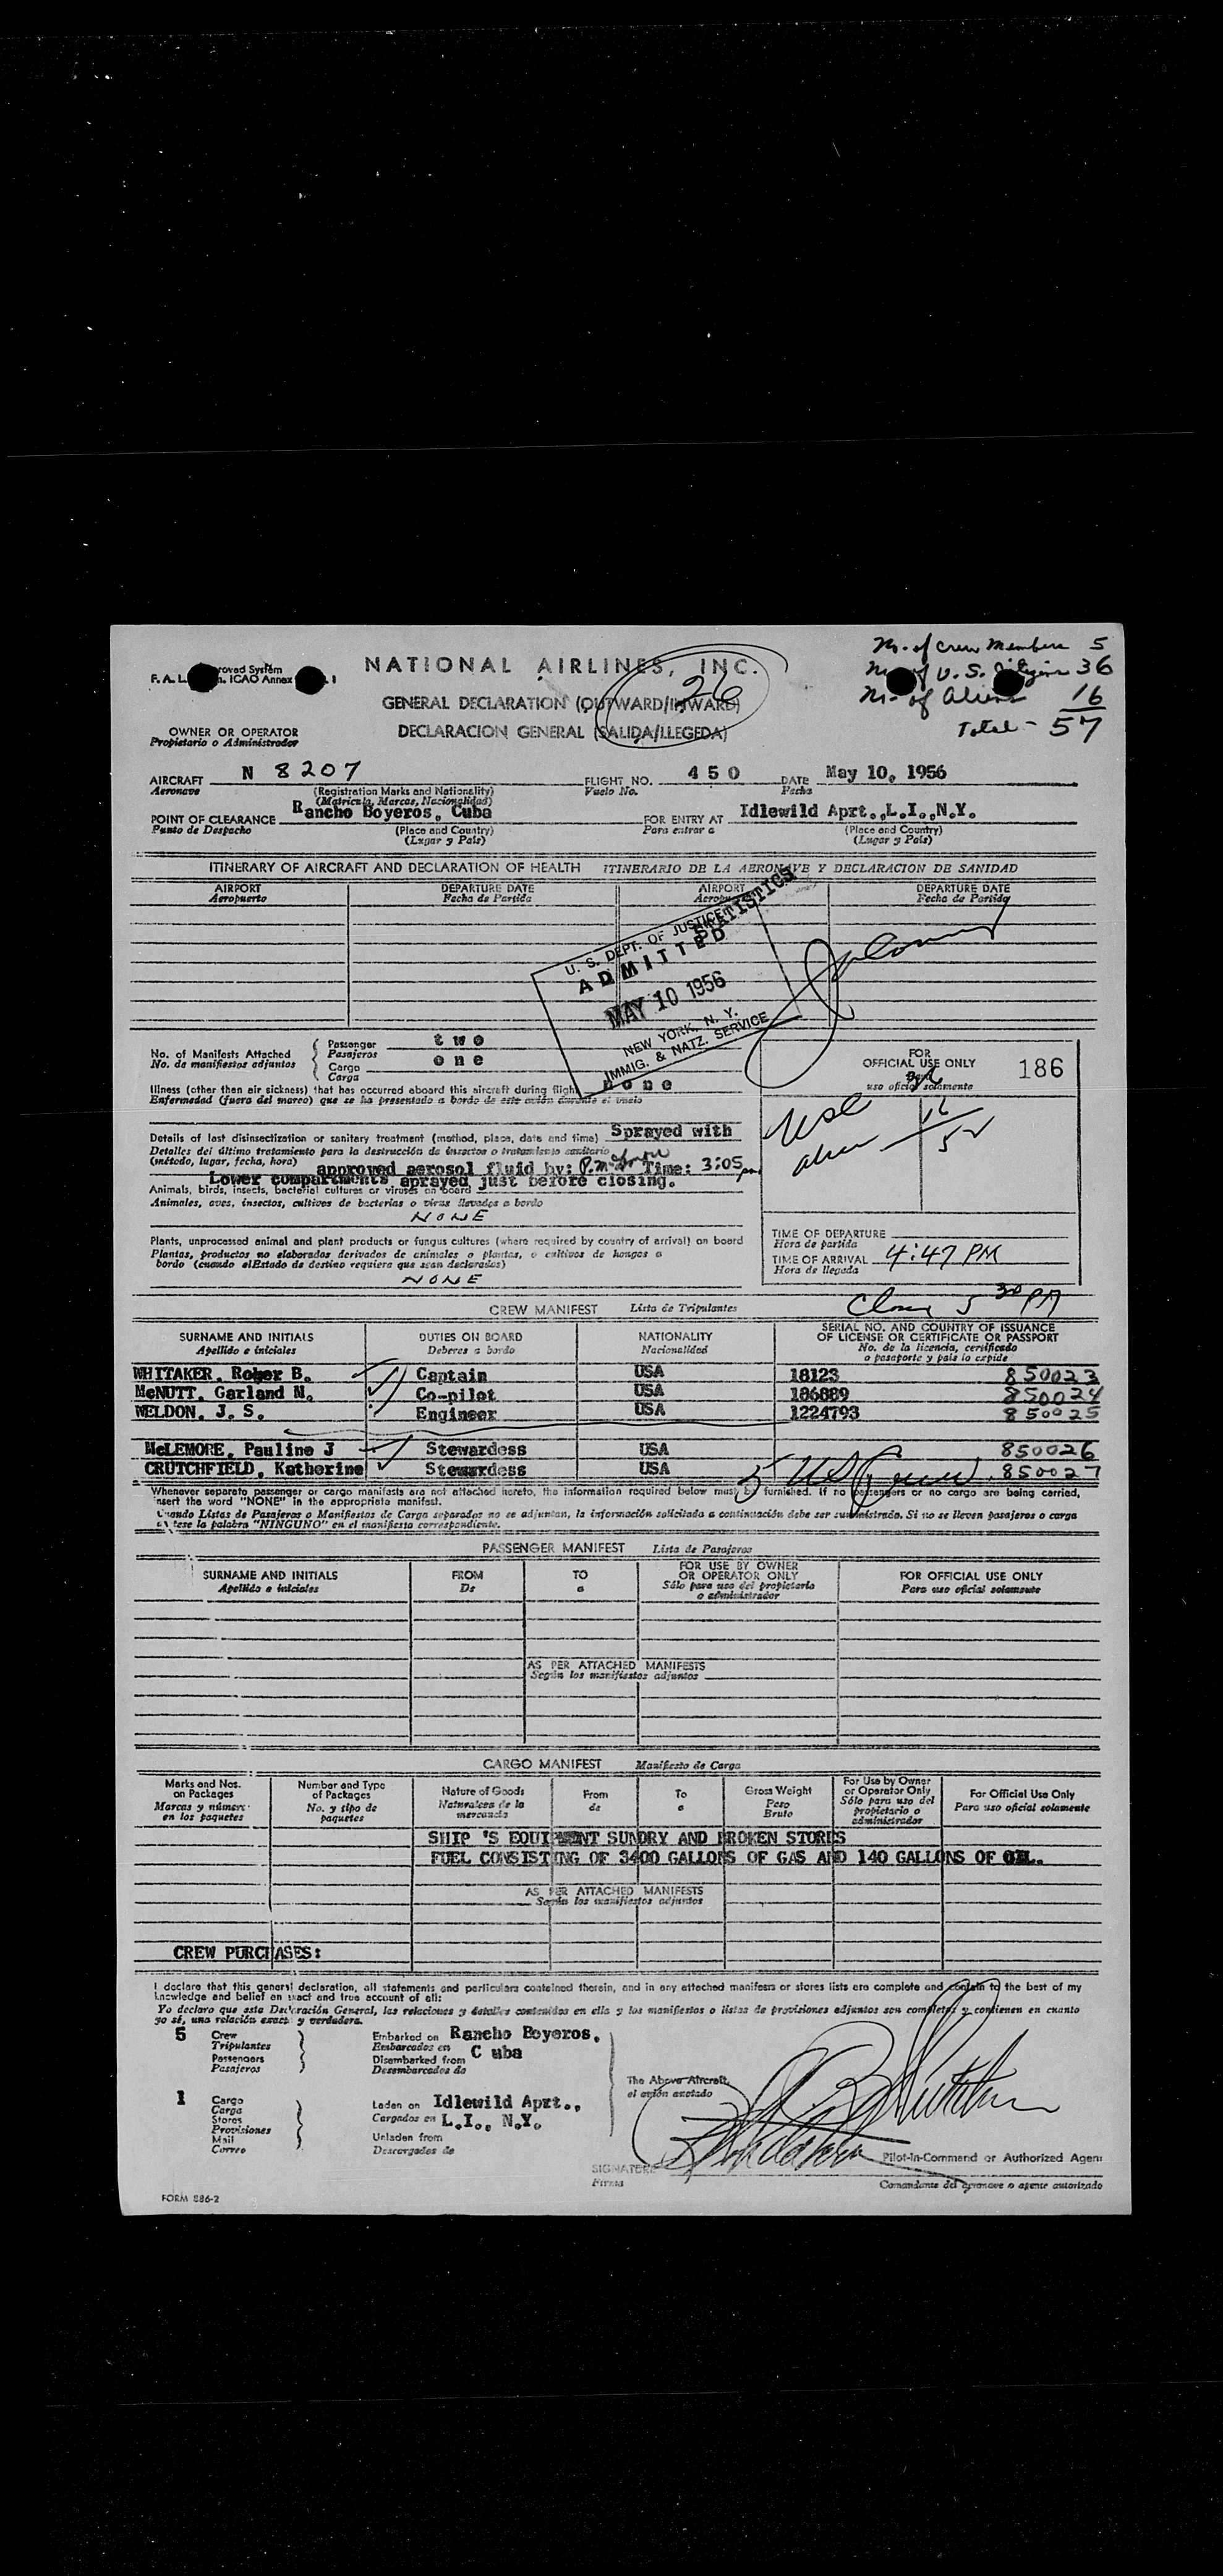 No. of crew Members 5
No. of U.S. Citizens 36
No. of Aliens 16
Total - 57
roved System
F. A. L. ICAO Annex 1
NATIONAL AIRLINES, INC.
26
GENERAL DECLARATION (OUTWARD/INWARD)
DECLARACION GENERAL (SALIDA/LLEGEDA)
OWNER OR OPERATOR
Propietario o Administrador
AIRCRAFT N 8207 FLIGHT NO. 450 DATE May 10, 1956
Aeronave (Registration Marks and Nationality) Vuelo No. Fecha
(Matricula, Marcas, Nacionalidad)
POINT OF CLEARANCE Rancho Boyeros, Cuba FOR ENTRY AT Idlewild Aprt.,L.I.,N.Y.
Punto de Despacho (Place and Country) Para entrar a (Place and Country)
(Lugar y Pais) (Lugar y Pais)
ITINERARY OF AIRCRAFT AND DECLARATION OF HEALTH ITINERARIO DE LA AERONAVE Y DECLARACION DE SANIDAD
AIRPORT DEPARTURE DATE AIRPORT DEPARTURE DATE
Aeropuerto Fecha de Partida Aeropuerto Fecha de Partida
STATISTICS
U. S. DEPT. OF JUSTICE
ADMITTED
MAY 10 1956
NEW YORK, N. Y.
IMMIG. & NATZ. SERVICE
No. of Manifests Attached Passenger two
No. de manifiestos adjuntos Pasajeros
Cargo one
Carga
FOR
OFFICIAL USE ONLY 186
uso oficial solamente
Illness (other than air sickness) that has occurred aboard this aircraft during flight none
Enfermedad (fuera del mareo) que se ha presentado a bordo de este avión durante el vuelo
USC
alien 16
52
Details of last disinsectization or sanitary treatment (method, place, date and time) Sprayed with
Detalles del último tratamiento para la destrucción de insectos o tratamiento sanitario
(método, lugar, fecha, hora) approved aerosol fluid by: Time: 3:05 pm
Lower compartments sprayed just before closing.
Animals, birds, insects, bacterial cultures or viruses on board
Animales, aves, insectos, cultivos de bacterias o virus llevados a bordo
NONE
Plants, unprocessed animal and plant products or fungus cultures (where required by country of arrival) on board
Plantas, productos no elaborados derivados de animales o plantas, o cultivos de hongos a
bordo (cuando elEstado de destino requiera que sean declarados)
NONE
TIME OF DEPARTURE
Hora de partida
TIME OF ARRIVAL 4:47 PM
Hora de llegada
5 30 PM
CREW MANIFEST Lista de Tripulantes
SURNAME AND INITIALS DUTIES ON BOARD NATIONALITY SERIAL NO. AND COUNTRY OF ISSUANCE
OF LICENSE OR CERTIFICATE OR PASSPORT
Apellido e iniciales Deberes a bordo Nacionalidad No. de la licencia, certificado
o pasaporte y pais lo expide
WHITAKER, Roger B. Captain USA 18123 850023
McNUTT, Garland M. Co-pilot USA 186889 850024
WELDON, J. S. Engineer USA 1224793 850025
McLEMORE, Pauline J Stewardess USA 850026
CRUTCHFIELD, Katherine Stewardess USA 850027
5 US
Whenever separate passenger or cargo manifests are not attached hereto, the information required below must be furnished. If no passengers or no cargo are being carried,
insert the word "NONE" in the appropriate manifest.
Cuando Listas de Pasajeros o Manifiestos de Carga separados no se adjuntan, la información solicitada a continuación debe ser suministrada. Si no se lleven pasajeros o carga
tese la palabra "NINGUNO" en el manifiesto correspondiente.
PASSENGER MANIFEST Lista de Pasajeros
SURNAME AND INITIALS FROM TO FOR USE BY OWNER
OR OPERATOR ONLY FOR OFFICIAL USE ONLY
Apellido e iniciales De a Sólo para uso del propietario
o administrador Para uso oficial solamente
AS PER ATTACHED MANIFESTS
Según los manifiestos adjuntos
CARGO MANIFEST Manifiesto de Carga
Marks and Nos.
on Packages Number and Type
of Packages Nature of Goods From To Gross Weight For Use by Owner
or Operator Only For Official Use Only
Marcas y número
en los paquetes No. y tipo de
paquetes Naturaleza de la
mercancía de a Peso
Bruto Sólo para uso del
propietario o
administrador Para uso oficial solamente
SHIP 'S EQUIPMENT SUNDRY AND BROKEN STORES
FUEL CONSISTING OF 3400 GALLONS OF GAS AND 140 GALLONS OF OIL.
AS PER ATTACHED MANIFESTS
Según los manifiestos adjuntos
CREW PURCHASES:
I declare that this general declaration, all statements and particulars contained therein, and in any attached manifests or stores lists are complete and contain to the best of my
knowledge and belief an exact and true account of all:
Yo declaro que esta Declaración General, las relaciones y detalles contenidos en ella y los manifiestos o listas de provisiones adjuntos son completos y contienen en cuanto
yo sé, una relación exacta y verdadera.
5 Crew Embarked on Rancho Boyeros,
Tripulantes Embarcados en Cuba
Passengers Disembarked from
Pasajeros Desembarcados de
The Above Aircraft,
el avión anotado
1 Cargo Laden on Idlewild Aprt.,
Carga Cargados en L.I., N.Y.
Stores
Provisiones
Mail Unladen from
Correo Descargados de
SIGNATURE Pilot-in-Command or Authorized Agent
Firma Comandante del aeronave o agente autorizado
FORM 886-2